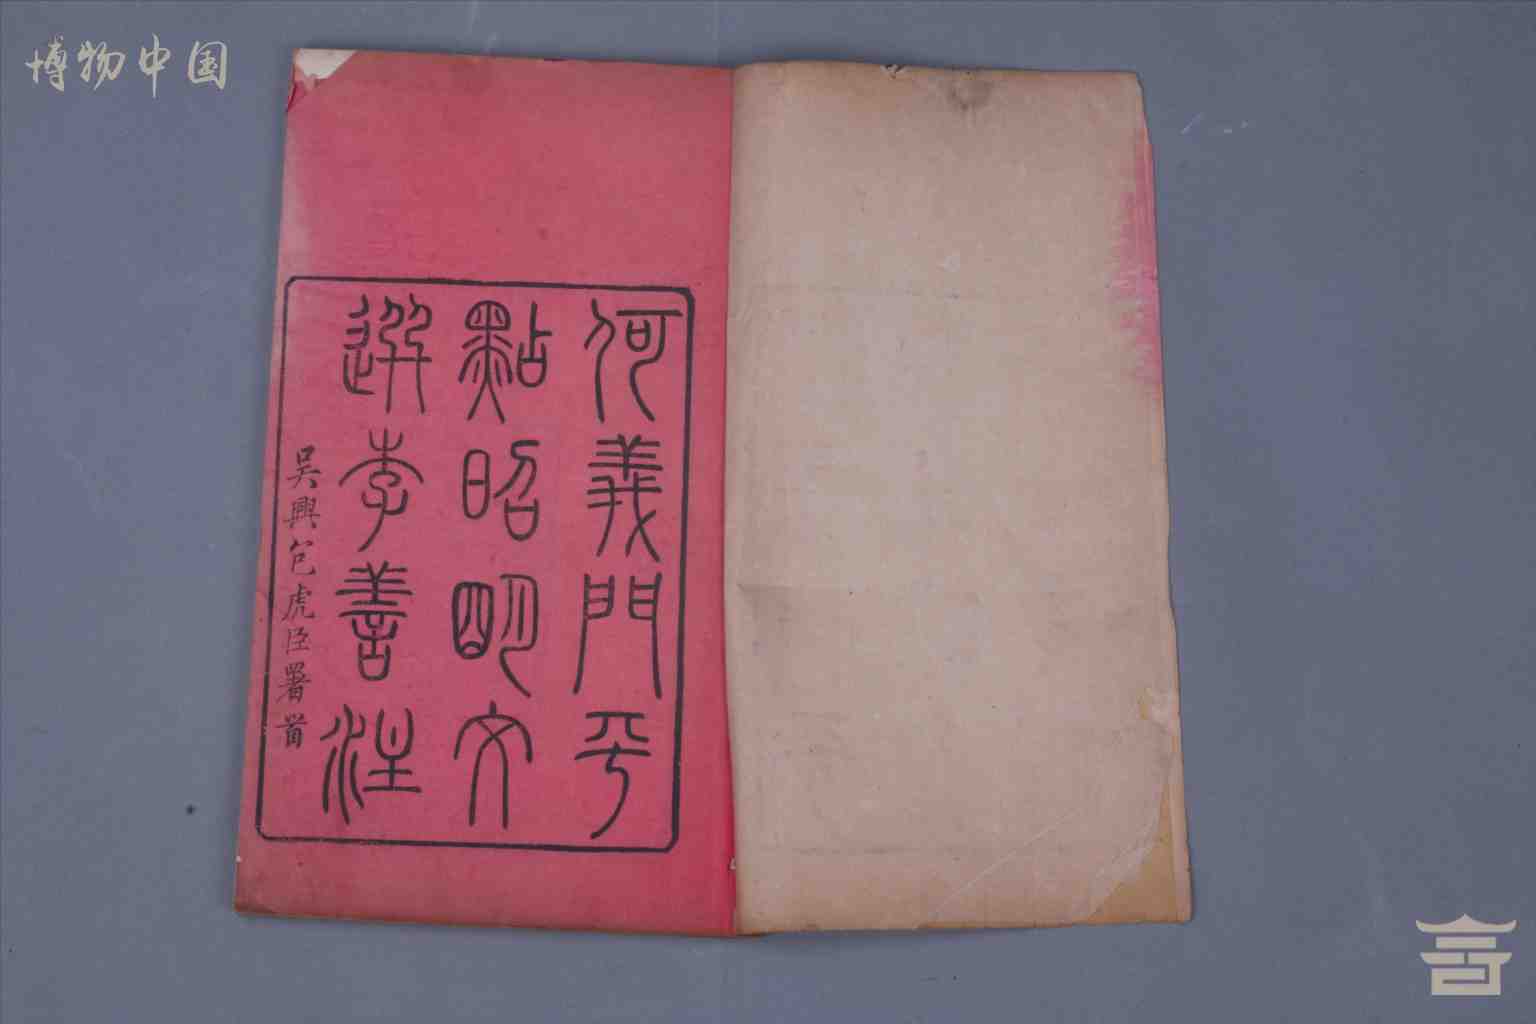 博物中国
何義門平
點昭明文
選李善注
吴興包虎臣署首